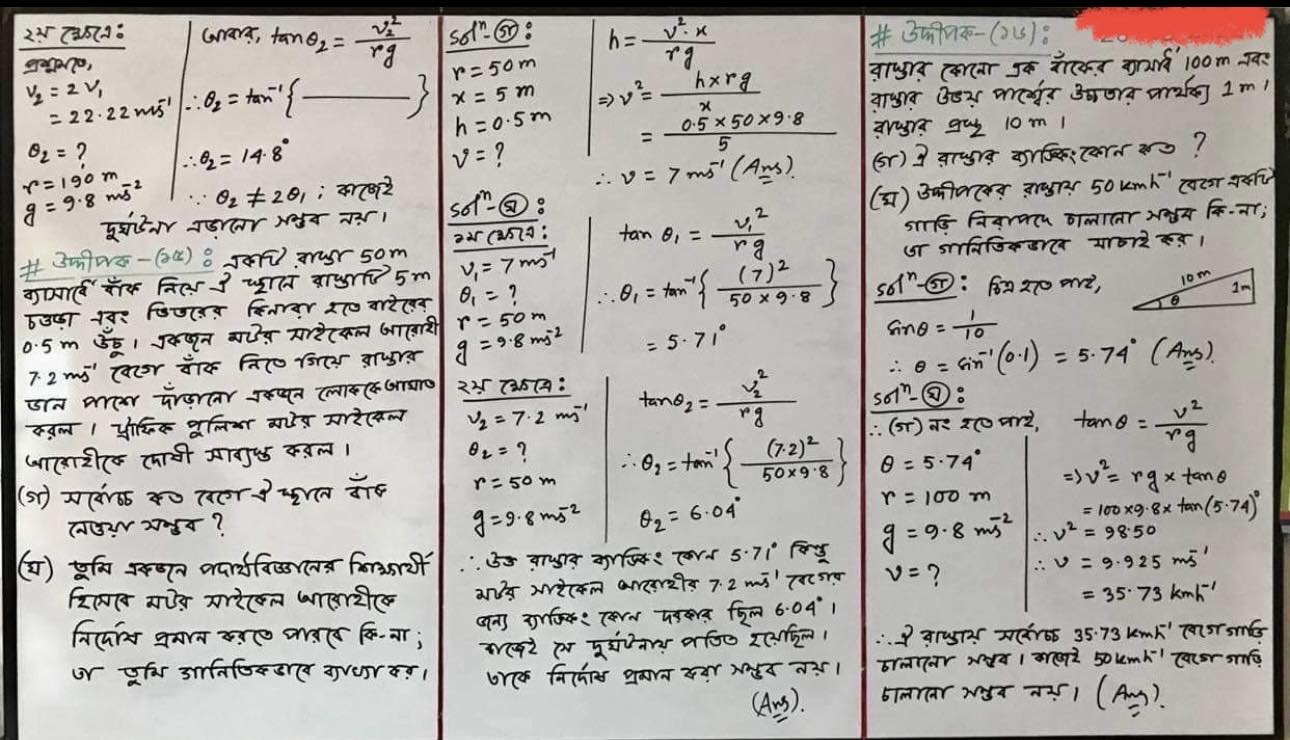 ২য় ক্ষেত্রে:
প্রশ্নমতে,
v₂ = 2v₁
= 22.22 ms⁻¹
θ₂ = ?
r = 190 m
g = 9.8 ms⁻²
আবার, tanθ₂ = v₂²/rg
∴ θ₂ = tan⁻¹ { ——— }
∴ θ₂ = 14.8°
∵ θ₂ ≠ 2θ₁ ; কাজেই
দুর্ঘটনা এড়ানো সম্ভব নয়।
# উদ্দীপক-(১৫): একটি রাস্তা 50 m
ব্যাসার্ধে বাঁক নিয়ে ঐ স্থানে রাস্তাটি 5 m
চওড়া এবং ভিতরের কিনারা হতে বাইরের
0.5 m উঁচু। একজন মটর সাইকেল আরোহী
7.2 ms⁻¹ বেগে বাঁক নিতে গিয়ে রাস্তার
ডান পাশে দাঁড়ানো একজন লোককে আঘাত
করল। ট্রাফিক পুলিশ মটর সাইকেল
আরোহীকে দোষী সাব্যস্ত করল।
(গ) সর্বোচ্চ কত বেগে ঐ স্থানে বাঁক
নেওয়া সম্ভব?
(ঘ) তুমি একজন পদার্থবিজ্ঞানের শিক্ষার্থী
হিসেবে মটর সাইকেল আরোহীকে
নির্দোষ প্রমান করতে পারবে কি-না;
তা তুমি গানিতিকভাবে ব্যাখ্যা কর।
solⁿ-গ:
r = 50 m
x = 5 m
h = 0.5 m
v = ?
h = v².x/rg
⇒ v² = h×rg/x
= 0.5×50×9.8/5
∴ v = 7 ms⁻¹ (Ans).
solⁿ-ঘ:
১ম ক্ষেত্রে:
v₁ = 7 ms⁻¹
θ₁ = ?
r = 50 m
g = 9.8 ms⁻²
tan θ₁ = v₁²/rg
∴ θ₁ = tan⁻¹ { (7)²/50×9.8 }
= 5.71°
২য় ক্ষেত্রে:
v₂ = 7.2 ms⁻¹
θ₂ = ?
r = 50 m
g = 9.8 ms⁻²
tanθ₂ = v₂²/rg
∴ θ₂ = tan⁻¹ { (7.2)²/50×9.8 }
θ₂ = 6.04°
∴ উক্ত রাস্তার ব্যাংকিং কোন 5.71° কিন্তু
মটর সাইকেল আরোহীর 7.2 ms⁻¹ বেগের
জন্য ব্যাংকিং কোন দরকার ছিল 6.04°।
কাজেই সে দুর্ঘটনায় পতিত হয়েছিল।
তাকে নির্দোষ প্রমান করা সম্ভব নয়।
(Ans).
# উদ্দীপক-(১৬):
রাস্তার কোনো এক বাঁকের ব্যাসার্ধ 100 m এবং
রাস্তার উভয় পার্শ্বের উচ্চতার পার্থক্য 1 m।
রাস্তার প্রস্থ 10 m।
(গ) ঐ রাস্তার ব্যাংকিং কোন কত?
(ঘ) উদ্দীপকের রাস্তায় 50 kmh⁻¹ বেগে একটি
গাড়ি নিরাপদে চালানো সম্ভব কি-না;
তা গানিতিকভাবে যাচাই কর।
solⁿ-গ: চিত্র হতে পাই,
10 m
1m
θ
sinθ = 1/10
∴ θ = sin⁻¹(0.1) = 5.74° (Ans).
solⁿ-ঘ:
∴ (গ) নং হতে পাই,
θ = 5.74°
r = 100 m
g = 9.8 ms⁻²
v = ?
tanθ = v²/rg
⇒ v² = rg × tanθ
= 100×9.8× tan(5.74)°
∴ v² = 98.50
∴ v = 9.925 ms⁻¹
= 35.73 kmh⁻¹
∴ ঐ রাস্তায় সর্বোচ্চ 35.73 kmh⁻¹ বেগে গাড়ি
চালানো সম্ভব। কাজেই 50 kmh⁻¹ বেগে গাড়ি
চালানো সম্ভব নয়। (Ans).